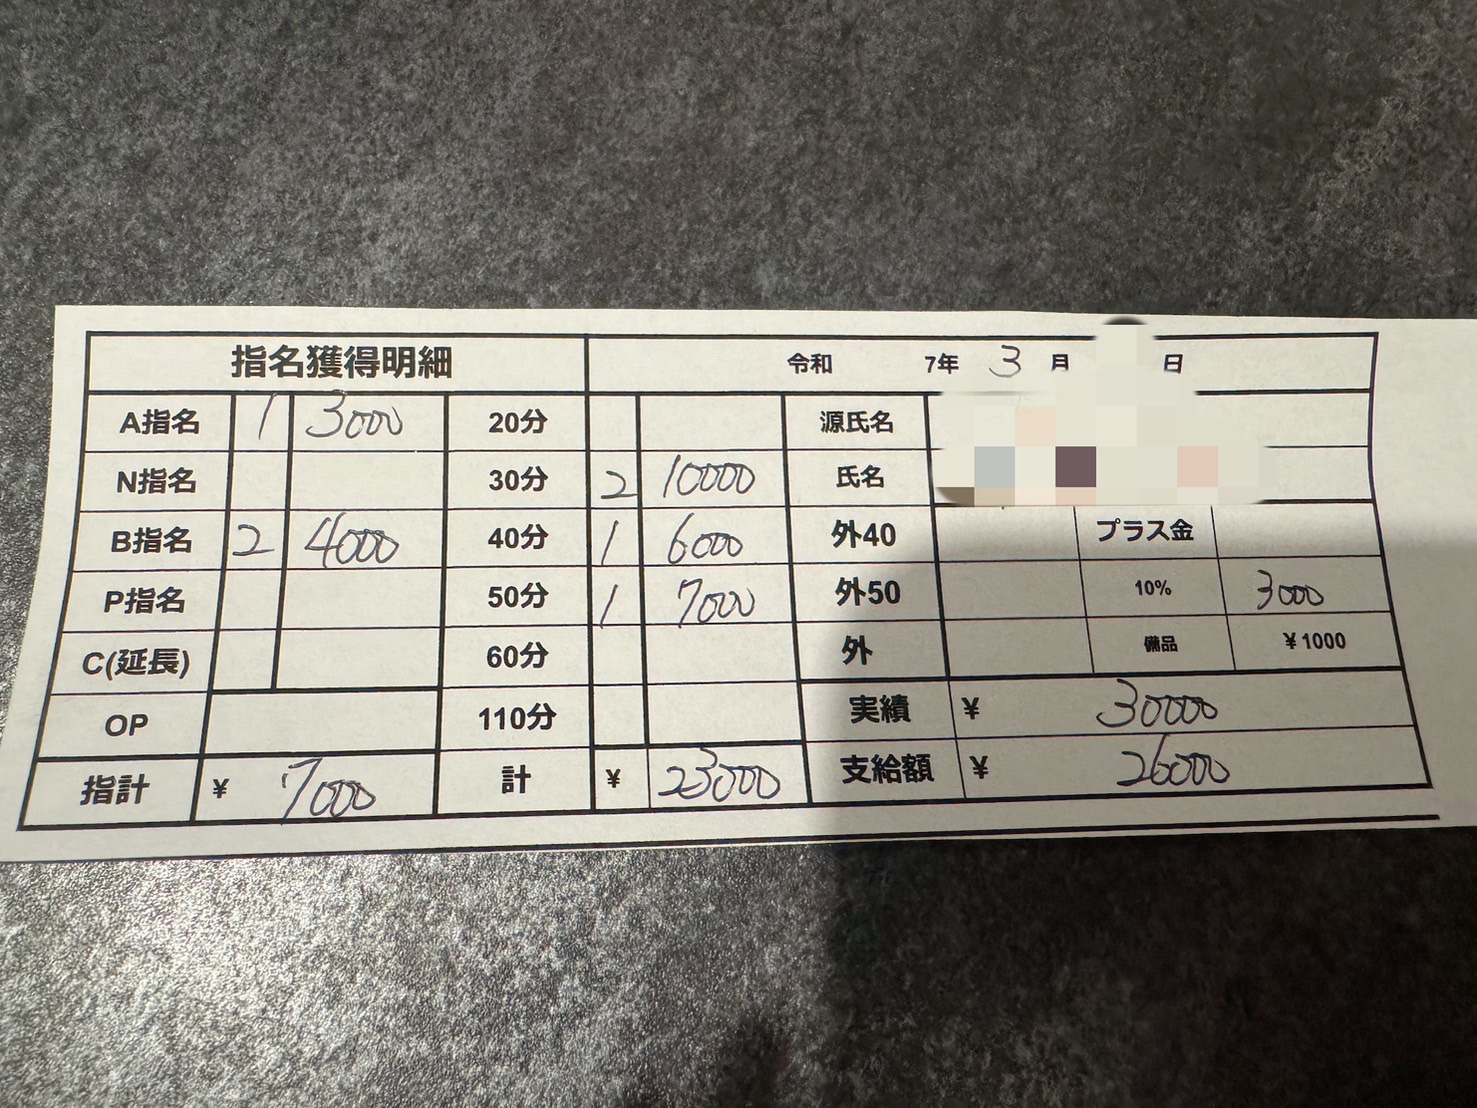 指名獲得明細 令和 7年 3月 日
A指名 1 3000 20分 源氏名
N指名 30分 2 10000 氏名
B指名 2 4000 40分 1 6000 外40 プラス金
P指名 50分 1 7000 外50 10% 3000
C(延長) 60分 外 備品 ¥1000
OP 110分 実績 ¥ 30000
指計 ¥ 7000 計 ¥ 23000 支給額 ¥ 26000